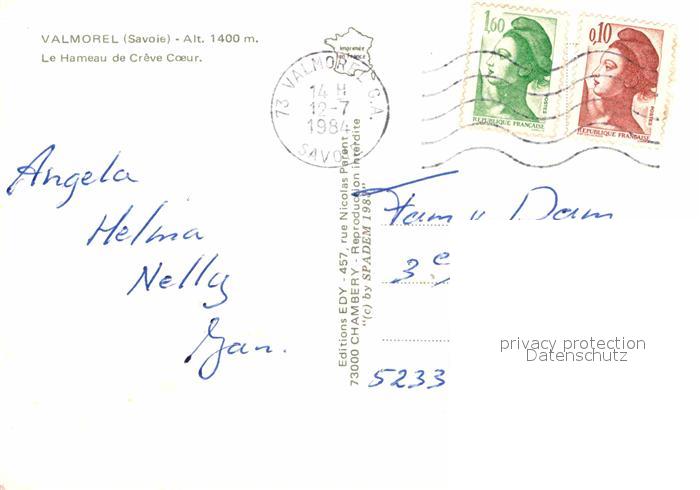 VALMOREL (Savoie) - Alt. 1400 m.
Le Hameau de Crêve Cœur.
imprimée
en France
73 VALMOREL C.A.
14 H
12-7
1984
SAVOIE
1,60
POSTES
REPUBLIQUE FRANÇAISE
0,10
POSTES
REPUBLIQUE FRANÇAISE
Angela
Helma
Nelly
Jan.
Editions EDY - 457, rue Nicolas Parent
73000 CHAMBERY - Reproduction interdite
"(c) by SPADEM 1983"
Fam
3e
5233
privacy protection
Datenschutz